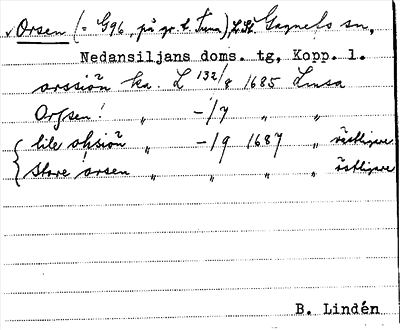 v Orsen (= G96, på gr. t. Tuna), L. Sk. Gagnefs sn,
Nedansiljans doms. tg, Kopp. l.
orssiön ka. L 132/8 1685 Lmsa
Orssen! „ -/7 „ „
{ lile ohsiön „ -/9 1687 „ västligare
{ Store orsen „ „ „ „ östligare
B. Lindén